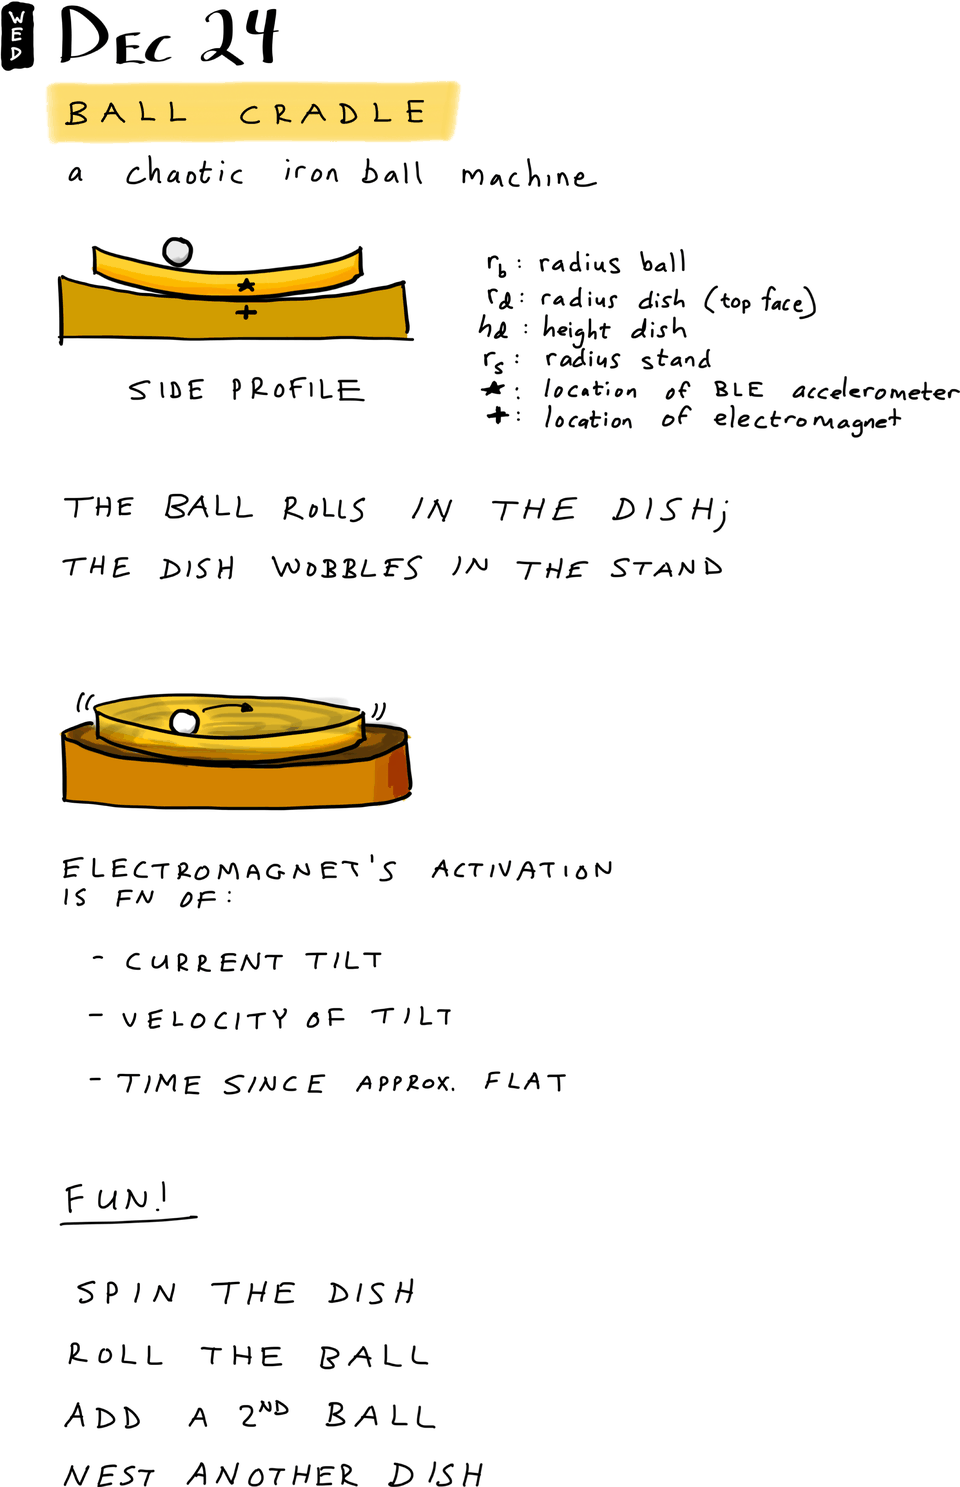 WED
DEC 24
BALL CRADLE
a chaotic iron ball machine
r_b: radius ball
r_d: radius dish (top face)
h_d: height dish
r_s: radius stand
★: location of BLE accelerometer
+: location of electromagnet
SIDE PROFILE
THE BALL ROLLS IN THE DISH;
THE DISH WOBBLES IN THE STAND
ELECTROMAGNET'S ACTIVATION
IS FN OF:
- CURRENT TILT
- VELOCITY OF TILT
- TIME SINCE APPROX. FLAT
FUN!
SPIN THE DISH
ROLL THE BALL
ADD A 2ND BALL
NEST ANOTHER DISH